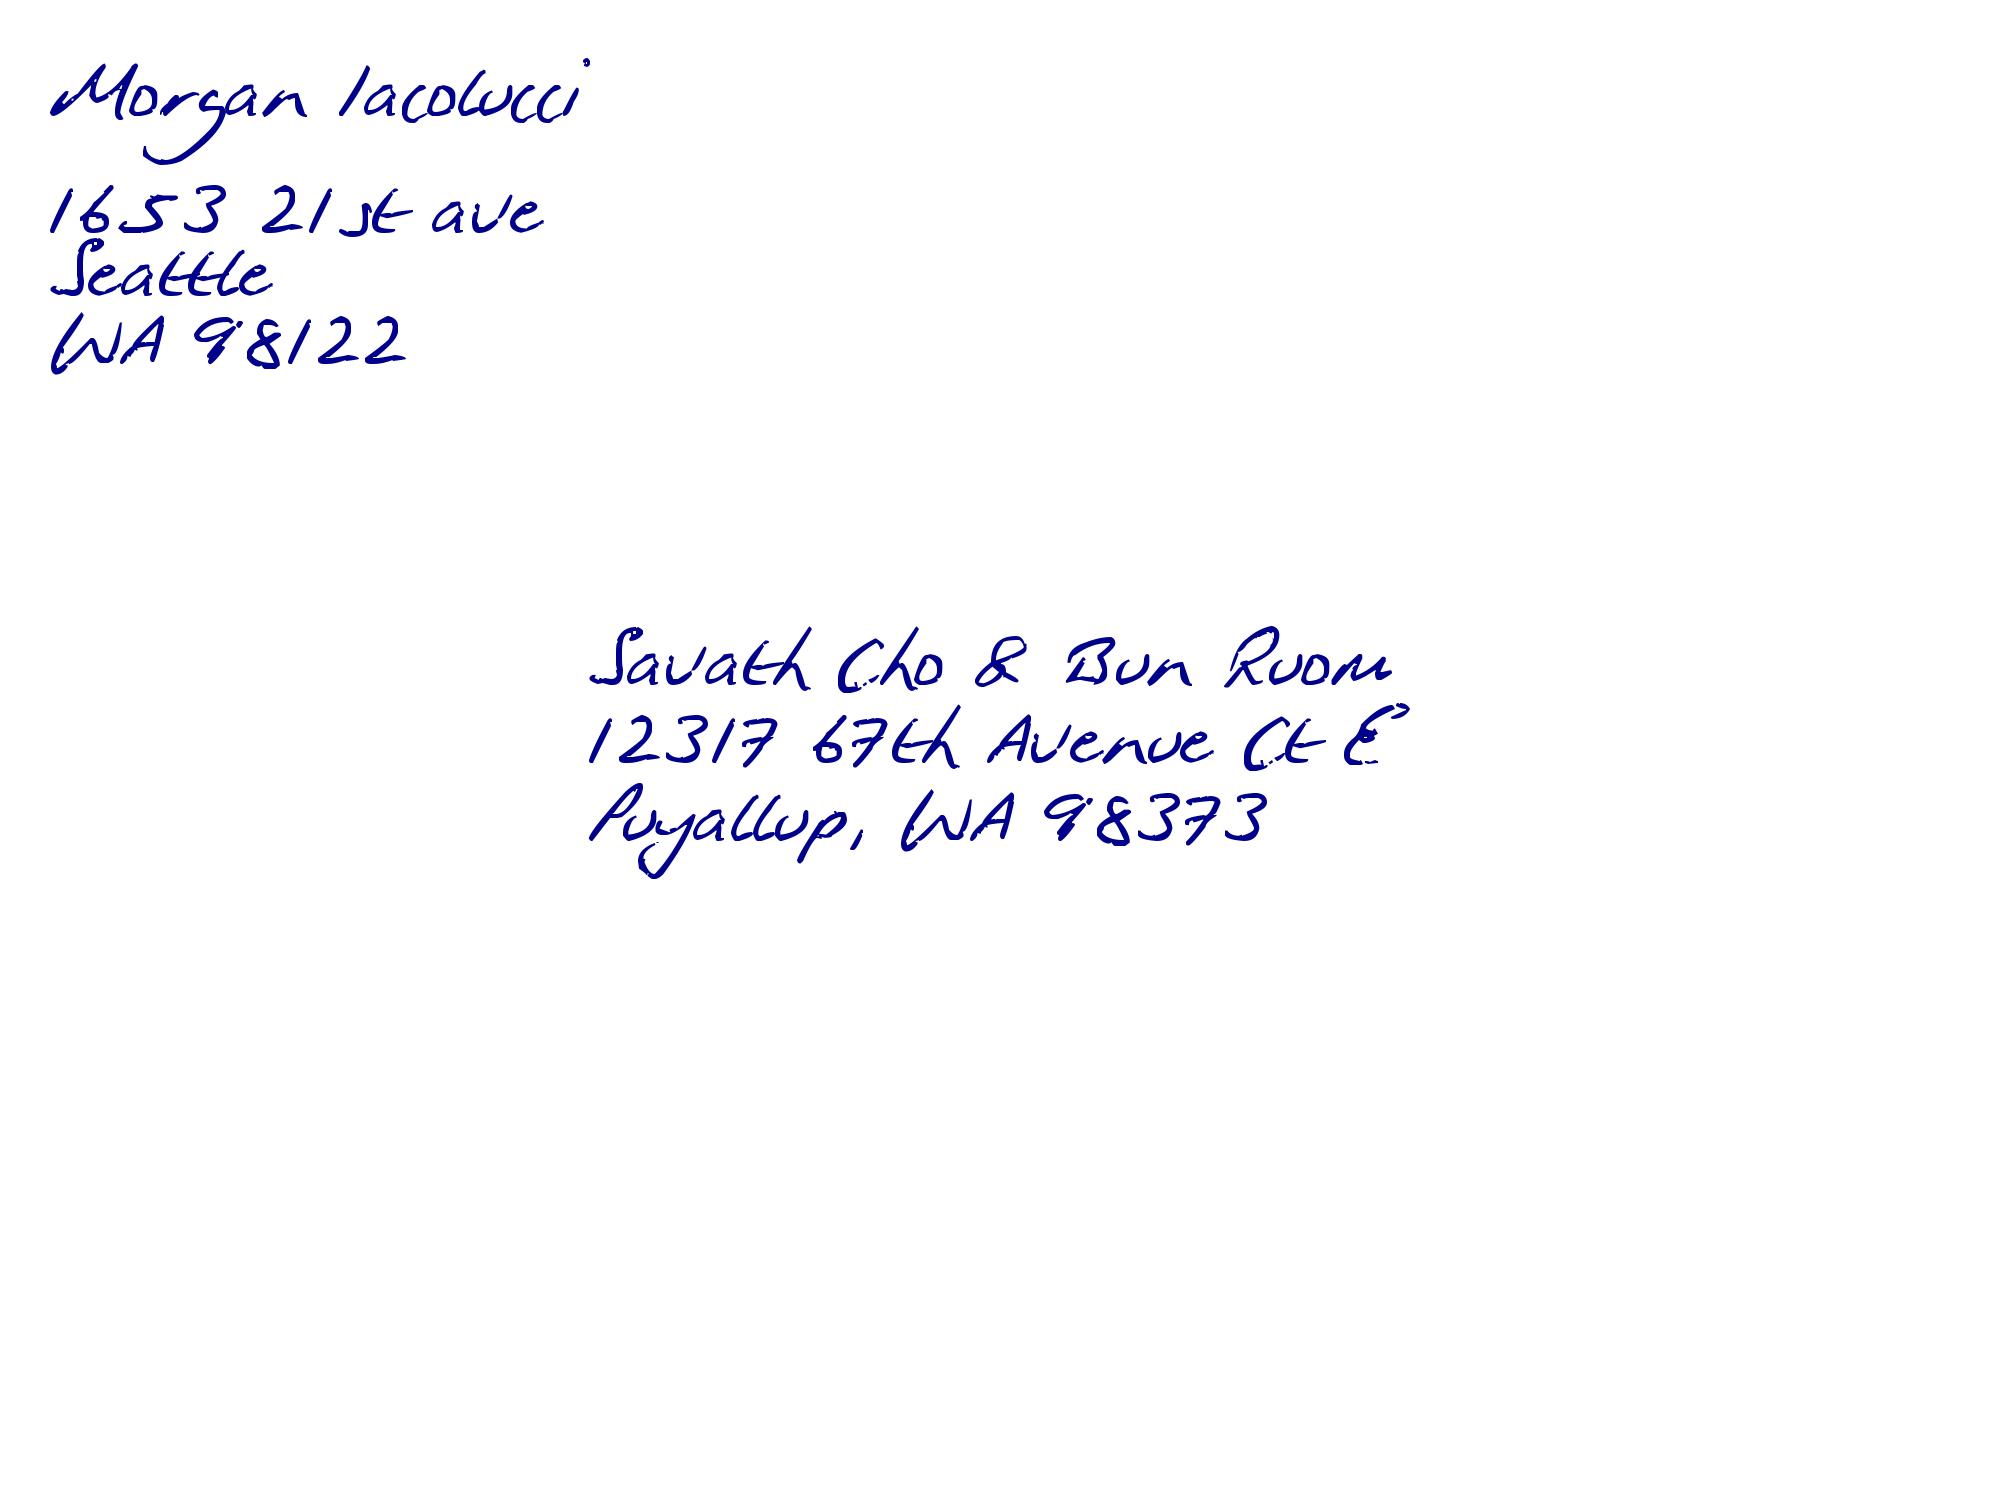 Morgan Iacolucci
1653 21st ave
Seattle
WA 98122
Savath Cho & Bun Ruom
12317 67th Avenue Ct E
Puyallup, WA 98373